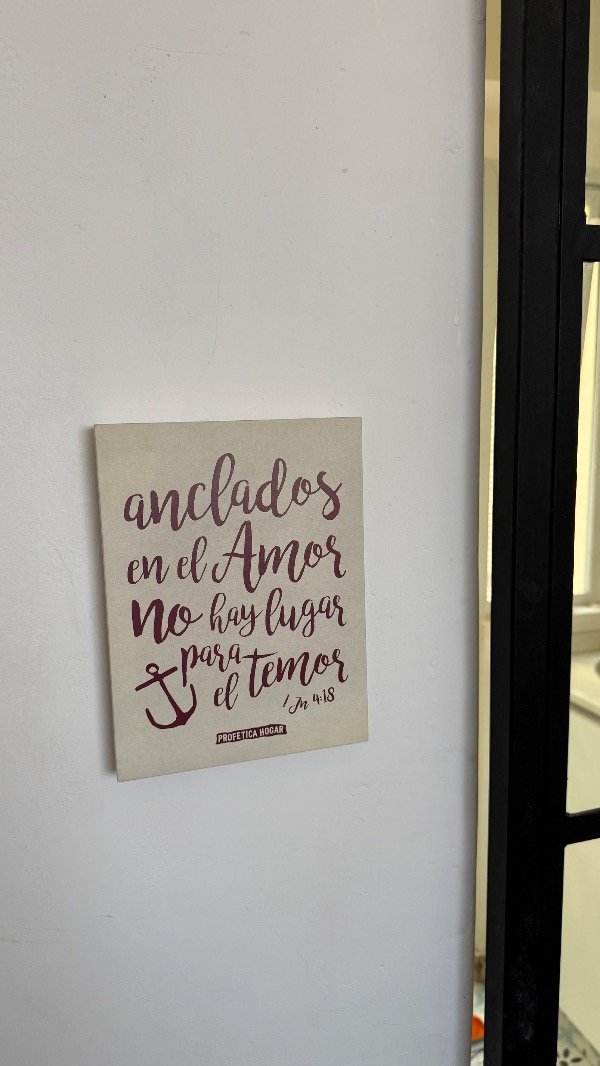 anclados
en el Amor
no hay lugar
para
el temor
1 Jn 4:18
PROFETICA HOGAR